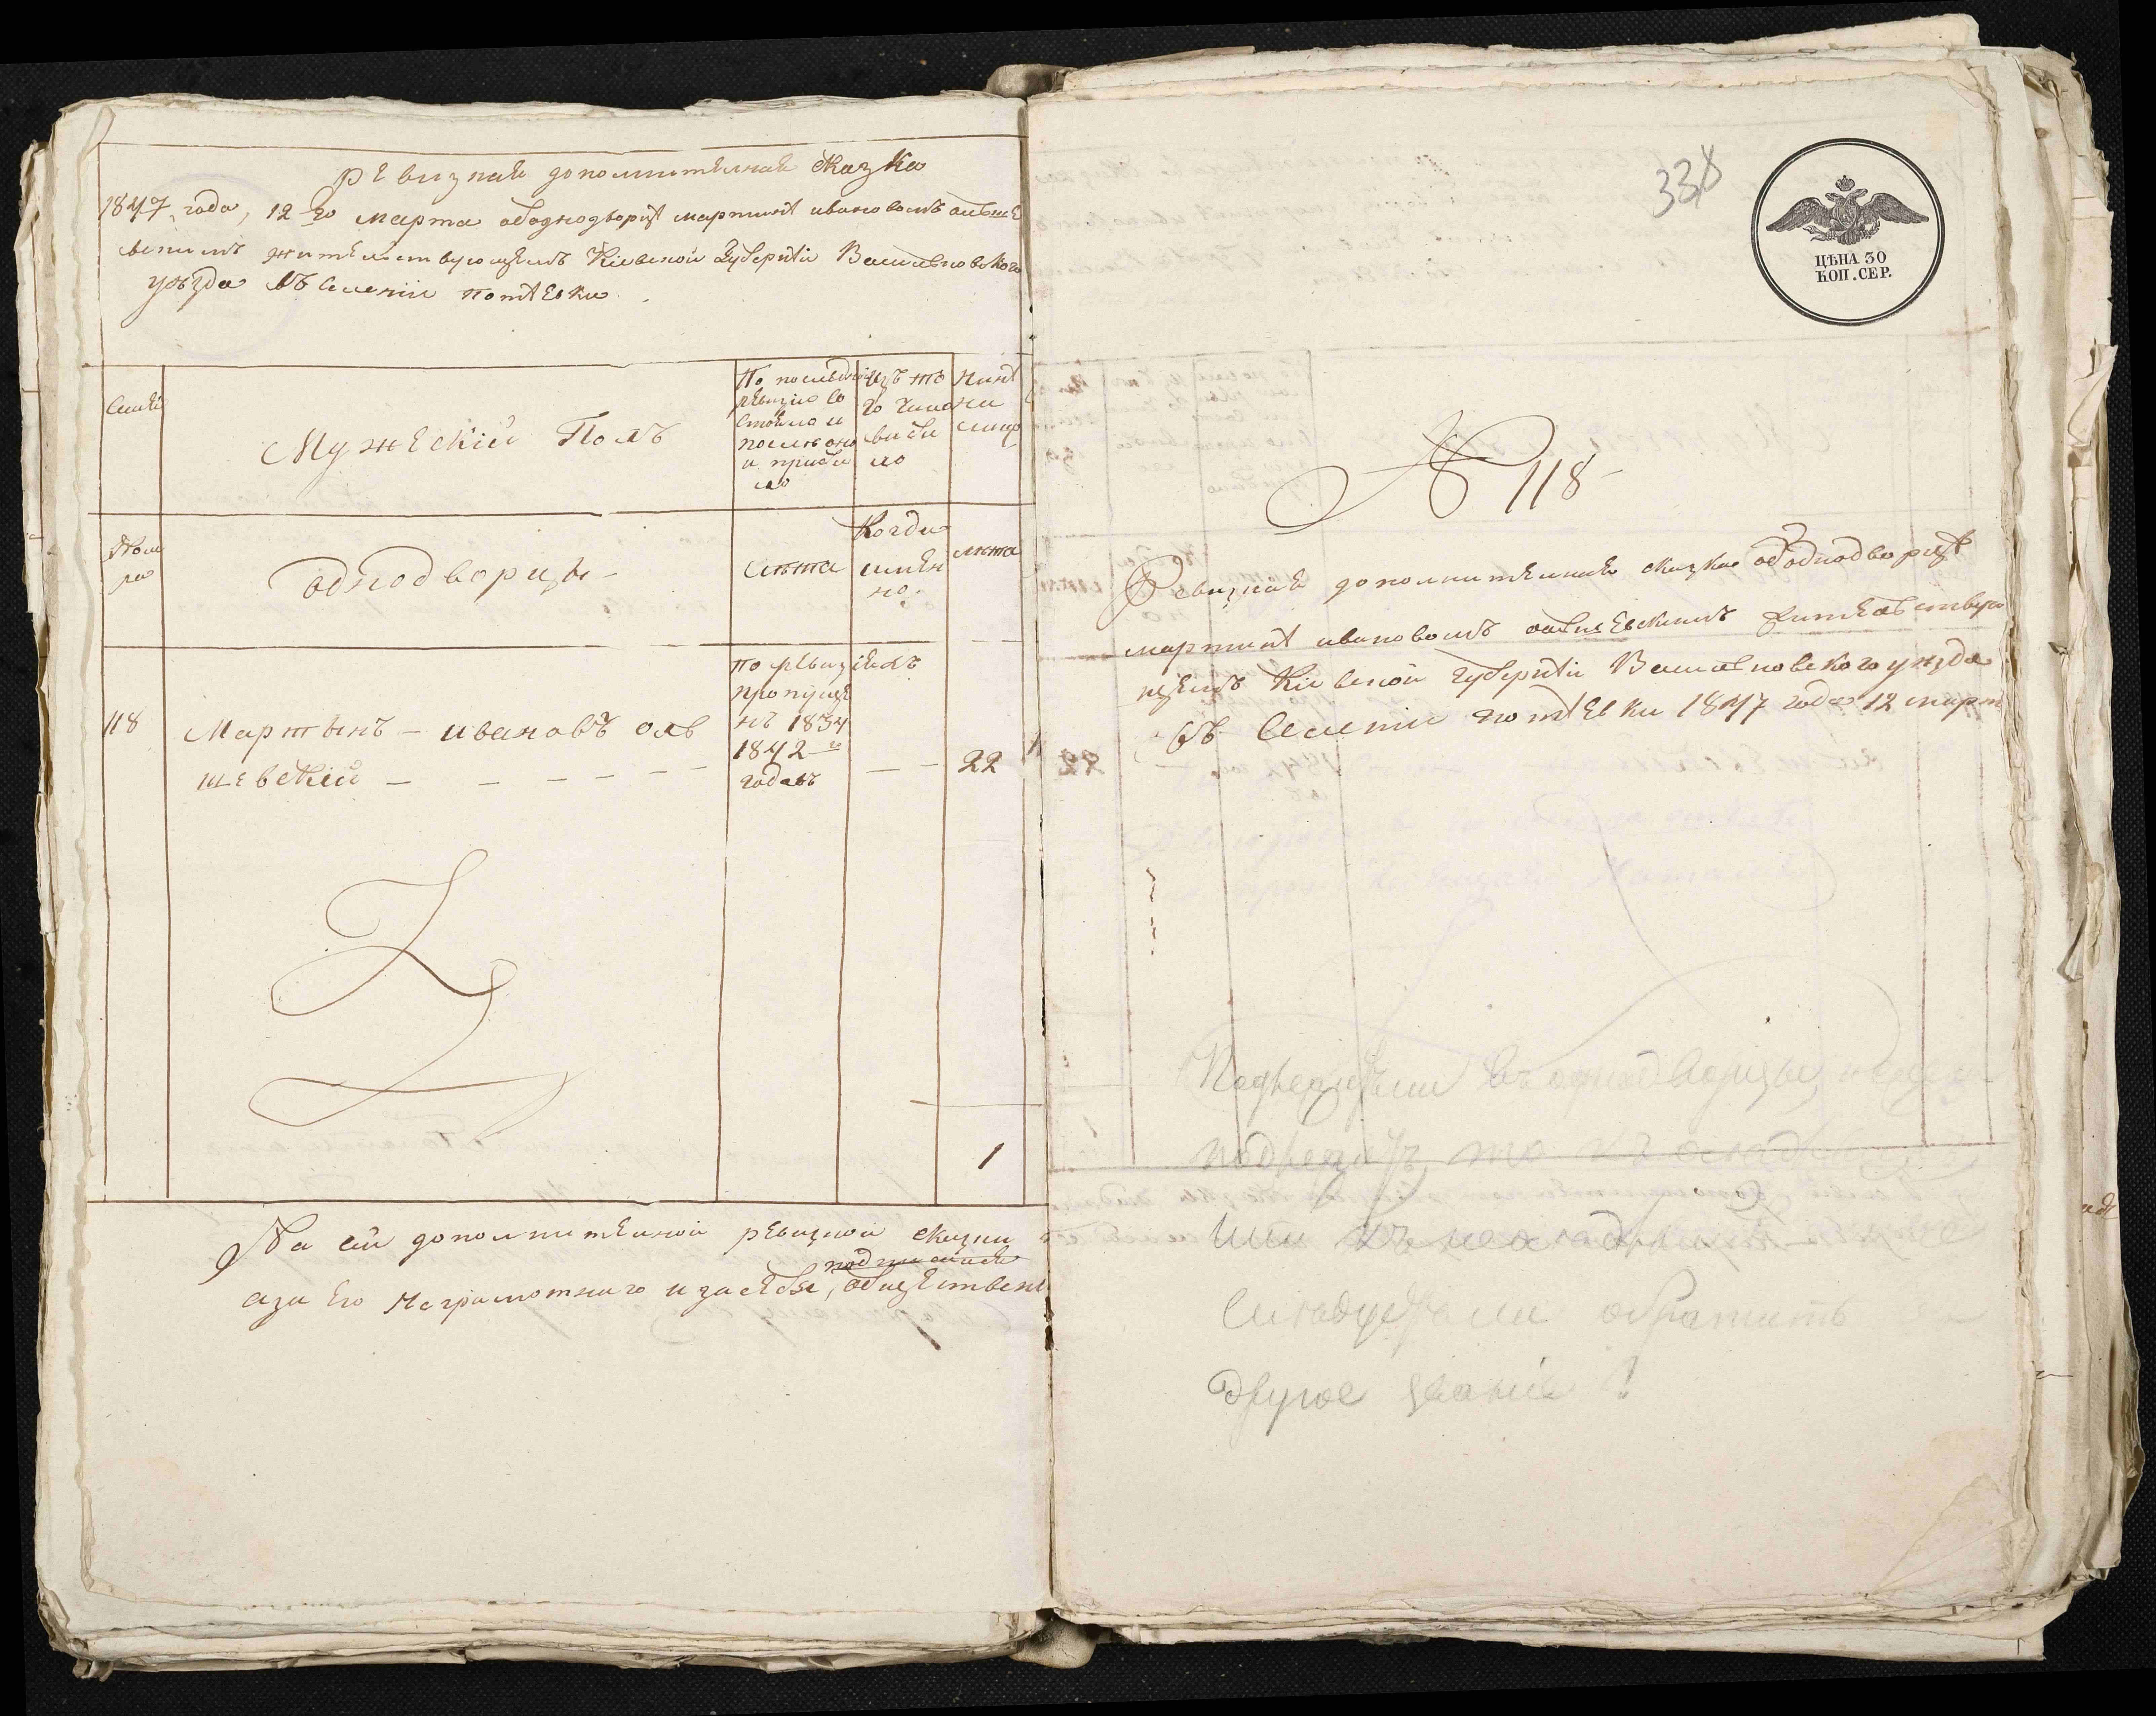 Ревизная дополнителная сказка
1847 года, 12 го марта ободнодворцѣ мартинѣ ивановомъ олъше
вскимъ жителствующемъ Кіевской Губерніи Василковского
уѣзда въ селеніи потѣевки
семіи
Мужескій Полъ
По последней
ревизіи со
стояло и
после оно
и прибы
ло
изъ то
го числа
выбы
ло
нинѣ
на
лицо
Номе
ра
однодворцы
лѣта
Когда
имен
но
лѣта
118
Мартынъ - ивановъ олв
шевскій
по ревизіямъ
пропуще
нъ 1834
1842 го
годахъ
22
1
На сей дополнителной ревизной сказки
подписался
аза его неграмотнаго изасебя, обществен
338
ЦѢНА 30
КОП. СЕР.
№ 118
Ревизная дополнителная сказка ободнодворцѣ
мартинѣ ивановомъ олвшевскимъ жителвствую
щемъ Кіевской губерніи Василковского уѣзда
въ селеніи потѣевки 1847 года 12 март
въ однодворцы
то къ
или къ
обратить
другое званіе ?